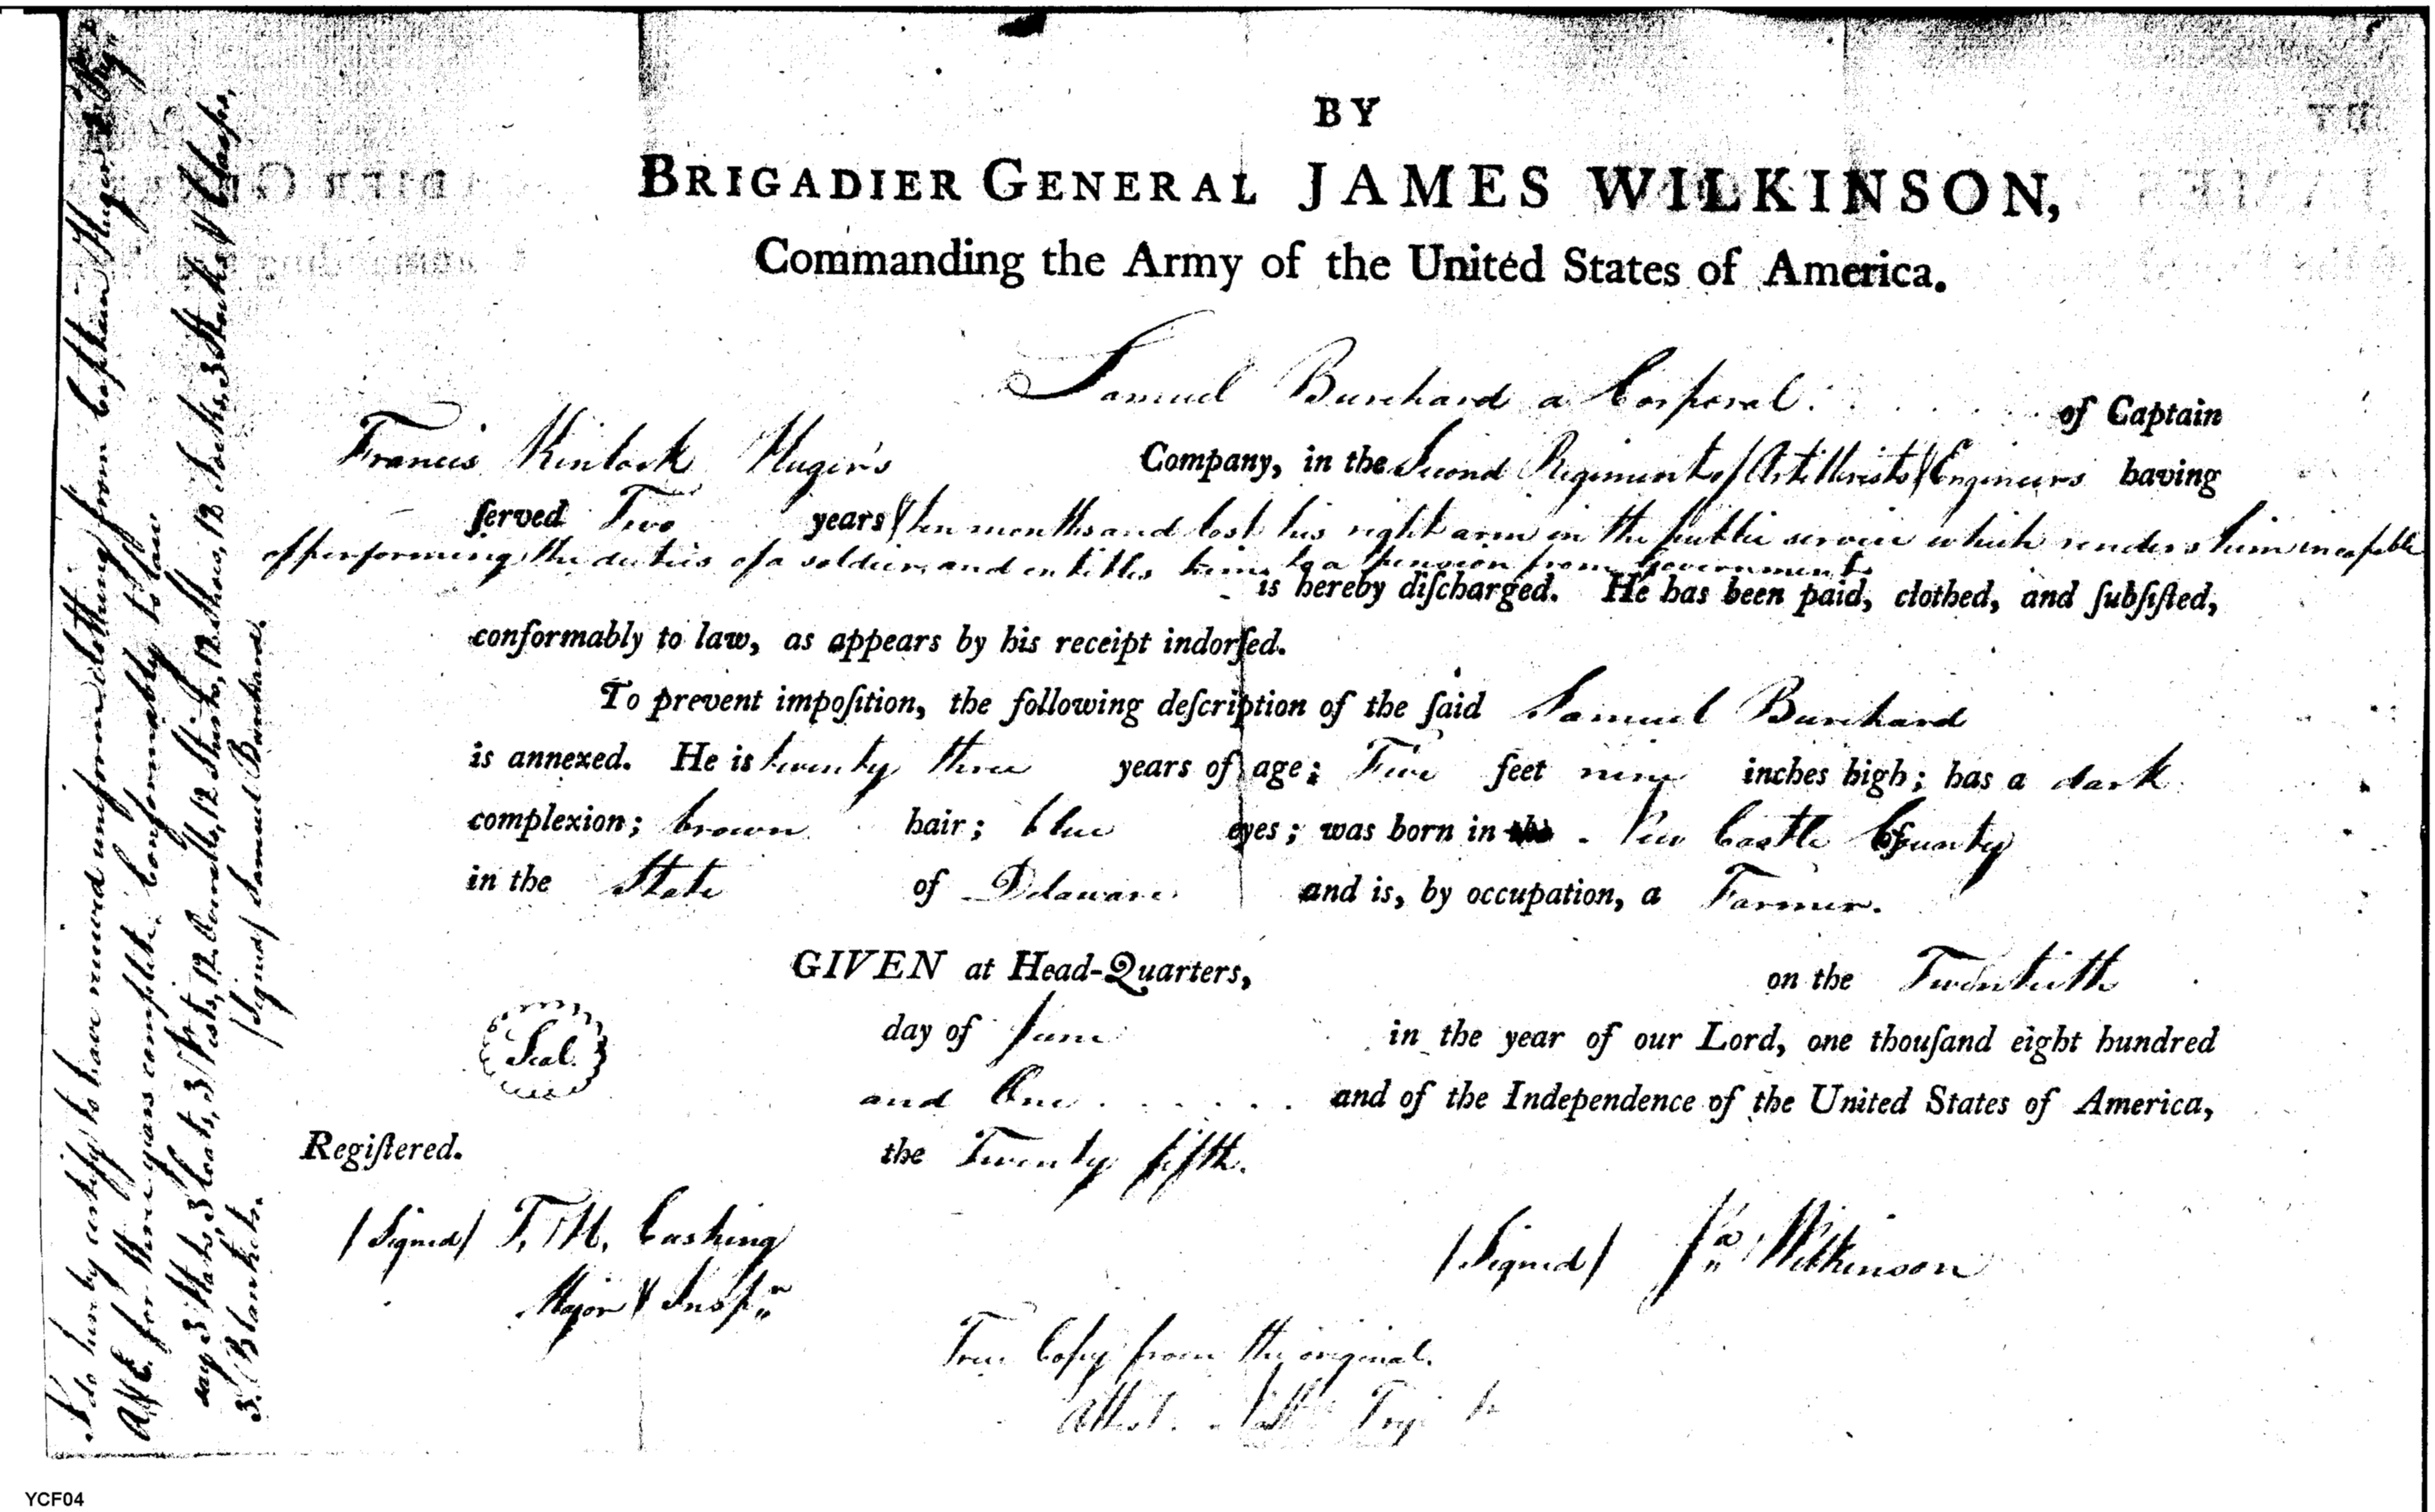 BY
BRIGADIER GENERAL JAMES WILKINSON,
Commanding the Army of the United States of America.
Samuel Burchard a Corporal. of Captain
Francis Kinlock Huger's Company, in the Second Regiment of Artillerists & Engineers having
ſerved Two years & ten months and lost his right arm in the public service which renders him incapable
of performing the duties of a soldier, and entitles him to a pension from Government.
is hereby diſcharged. He has been paid, clothed, and ſubſiſted,
conformably to law, as appears by his receipt indorſed.
To prevent impoſition, the following deſcription of the ſaid Samuel Burchard
is annexed. He is twenty three years of age; Five feet nine inches high; has a dark
complexion; brown hair; blue eyes; was born in New Castle County
in the State of Delaware and is, by occupation, a Farmer.
GIVEN at Head-Quarters, on the Twentieth
day of June in the year of our Lord, one thouſand eight hundred
and One and of the Independence of the United States of America,
the Twenty fifth.
Seal.
Regiſtered.
/Signed/ T. H. Cushing
Major & Inspr.
/Signed/ Ja Wilkinson
True Copy from the original.
Attest.
I do hereby certify to have received uniform clothing from Captain Huger
A & E. for three years complete, conformably to law
say 3 Hats, 3 Coats, 3 Vests, 12 Overalls, 12 Shirts, 12 Shoes, 12 Socks, 3 Stocks & Clasps,
3. Blankets. /Signed/ Samuel Burchard.
YCF04